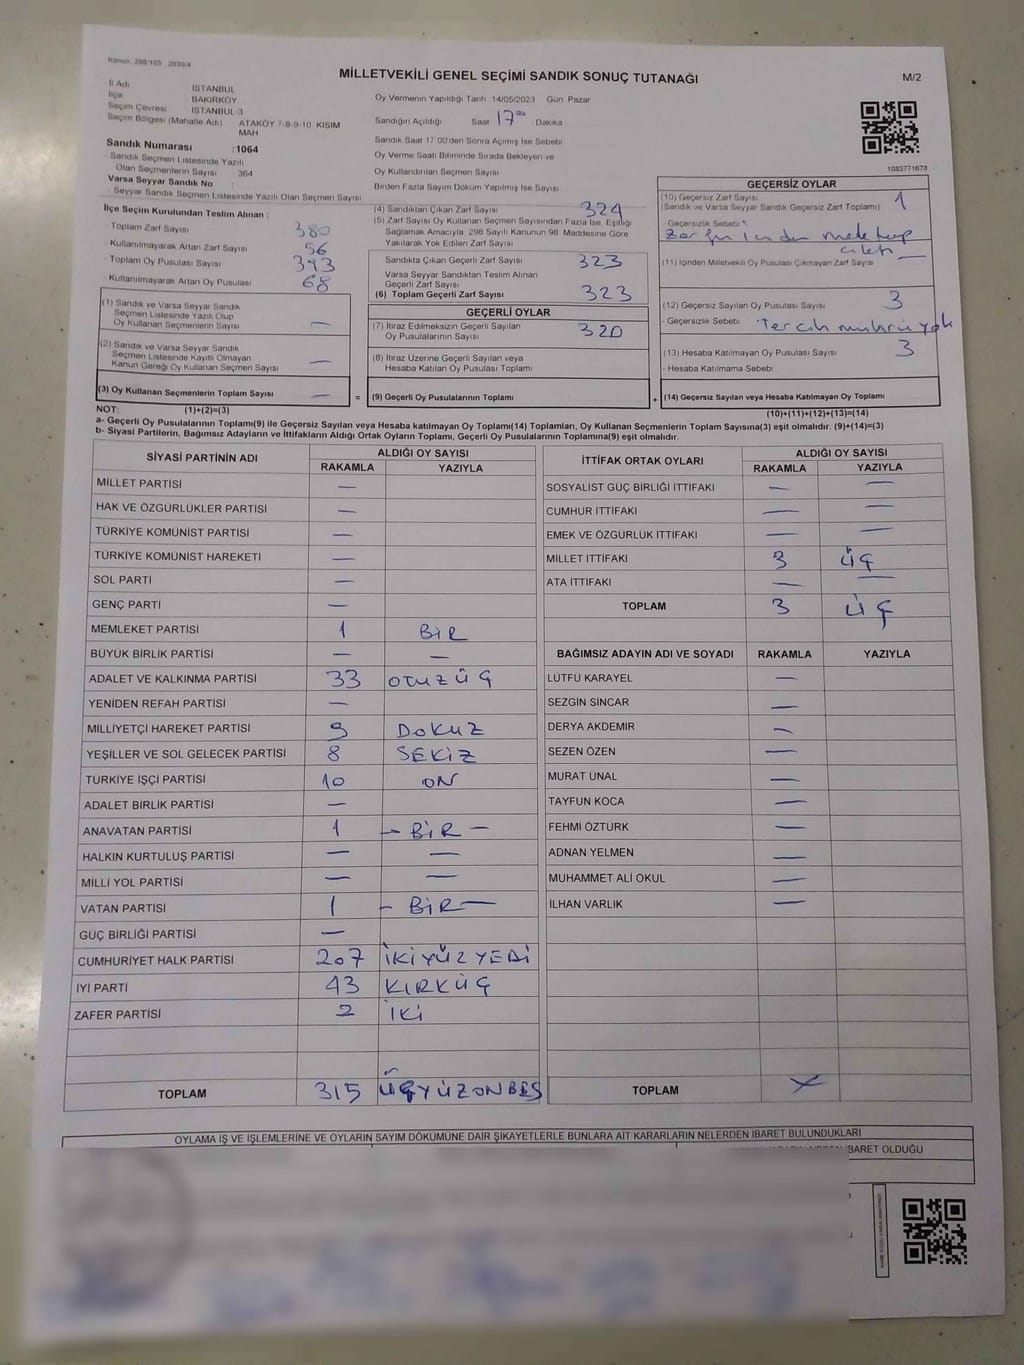 Kanun: 298/105 . 2839/4
MİLLETVEKİLİ GENEL SEÇİMİ SANDIK SONUÇ TUTANAĞI
M/2
İl Adı İSTANBUL
İlçe BAKIRKÖY
Seçim Çevresi İSTANBUL 3
Seçim Bölgesi (Mahalle Adı) ATAKÖY 7-8-9-10 KISIM
MAH
Sandık Numarası :1064
Sandık Seçmen Listesinde Yazılı
Olan Seçmenlerin Sayısı 364
Varsa Seyyar Sandık No :
Seyyar Sandık Seçmen Listesinde Yazılı Olan Seçmen Sayısı
İlçe Seçim Kurulundan Teslim Alınan :
Toplam Zarf Sayısı 380
Kullanılmayarak Artan Zarf Sayısı 56
Toplam Oy Pusulası Sayısı 393
Kullanılmayarak Artan Oy Pusulası 68
(1) Sandık ve Varsa Seyyar Sandık
Seçmen Listesinde Yazılı Olup
Oy Kullanan Seçmenlerin Sayısı —
(2) Sandık ve Varsa Seyyar Sandık
Seçmen Listesinde Kayıtlı Olmayan
Kanun Gereği Oy Kullanan Seçmen Sayısı —
(3) Oy Kullanan Seçmenlerin Toplam Sayısı —
Oy Vermenin Yapıldığı Tarih 14/05/2023 Gün Pazar
Sandığın Açıldığı Saat 17 00 Dakika
Sandık Saat 17:00'den Sonra Açımış İse Sebebi
Oy Verme Saati Bitiminde Sırada Bekleyen ve
Oy Kullandırılan Seçmen Sayısı
Birden Fazla Sayım Döküm Yapılmış İse Sayısı
(4) Sandıktan Çıkan Zarf Sayısı 324
(5) Zarf Sayısı Oy Kullanan Seçmen Sayısından Fazla İse, Eşitliği
Sağlamak Amacıyla, 298 Sayılı Kanunun 98. Maddesine Göre
Yakılarak Yok Edilen Zarf Sayısı
Sandıkta Çıkan Geçerli Zarf Sayısı 323
Varsa Seyyar Sandıktan Teslim Alınan
Geçerli Zarf Sayısı
(6) Toplam Geçerli Zarf Sayısı 323
GEÇERLİ OYLAR
(7) İtiraz Edilmeksizin Geçerli Sayılan
Oy Pusulalarının Sayısı 320
(8) İtiraz Üzerine Geçerli Sayılan veya
Hesaba Katılan Oy Pusulası Toplamı
= (9) Geçerli Oy Pusulalarının Toplamı
1083771678
GEÇERSİZ OYLAR
(10) Geçersiz Zarf Sayısı 1
(Sandık ve Varsa Seyyar Sandık Geçersiz Zarf Toplamı)
- Geçersizlik Sebebi
Zarfın içinden mektup
çıktı
(11) İçinden Milletvekili Oy Pusulası Çıkmayan Zarf Sayısı —
(12) Geçersiz Sayılan Oy Pusulası Sayısı 3
- Geçersizlik Sebebi Tercih mührü yok
(13) Hesaba Katılmayan Oy Pusulası Sayısı 3
- Hesaba Katılmama Sebebi
+ (14) Geçersiz Sayılan veya Hesaba Katılmayan Oy Toplamı
NOT: (1)+(2)=(3) (10)+(11)+(12)+(13)=(14)
a- Geçerli Oy Pusulalarının Toplamı(9) ile Geçersiz Sayılan veya Hesaba katılmayan Oy Toplamı(14) Toplamları, Oy Kullanan Seçmenlerin Toplam Sayısına(3) eşit olmalıdır. (9)+(14)=(3)
b- Siyasi Partilerin, Bağımsız Adayların ve İttifakların Aldığı Ortak Oyların Toplamı, Geçerli Oy Pusulalarının Toplamına(9) eşit olmalıdır.
SİYASİ PARTİNİN ADI ALDIĞI OY SAYISI
RAKAMLA YAZIYLA
MİLLET PARTİSİ —
HAK VE ÖZGÜRLÜKLER PARTİSİ —
TÜRKİYE KOMÜNİST PARTİSİ —
TÜRKİYE KOMÜNİST HAREKETİ —
SOL PARTİ —
GENÇ PARTİ —
MEMLEKET PARTİSİ 1 BİR
BÜYÜK BİRLİK PARTİSİ — —
ADALET VE KALKINMA PARTİSİ 33 otuz üç
YENİDEN REFAH PARTİSİ —
MİLLİYETÇİ HAREKET PARTİSİ 9 DOKUZ
YEŞİLLER VE SOL GELECEK PARTİSİ 8 SEKİZ
TÜRKİYE İŞÇİ PARTİSİ 10 ON
ADALET BİRLİK PARTİSİ —
ANAVATAN PARTİSİ 1 — BİR —
HALKIN KURTULUŞ PARTİSİ — —
MİLLİ YOL PARTİSİ — —
VATAN PARTİSİ 1 - BİR —
GÜÇ BİRLİĞİ PARTİSİ —
CUMHURİYET HALK PARTİSİ 207 İKİYÜZ YEDİ
İYİ PARTİ 43 KIRKÜÇ
ZAFER PARTİSİ 2 İKİ
TOPLAM 315 ÜÇYÜZONBEŞ
İTTİFAK ORTAK OYLARI ALDIĞI OY SAYISI
RAKAMLA YAZIYLA
SOSYALİST GÜÇ BİRLİĞİ İTTİFAKI — —
CUMHUR İTTİFAKI — —
EMEK VE ÖZGÜRLÜK İTTİFAKI — —
MİLLET İTTİFAKI 3 üç
ATA İTTİFAKI — —
TOPLAM 3 üç
BAĞIMSIZ ADAYIN ADI VE SOYADI RAKAMLA YAZIYLA
LÜTFÜ KARAYEL —
SEZGİN SİNCAR —
DERYA AKDEMİR —
SEZEN ÖZEN —
MURAT ÜNAL —
TAYFUN KOCA —
FEHMİ ÖZTÜRK —
ADNAN YELMEN —
MUHAMMET ALİ OKUL —
İLHAN VARLIK —
TOPLAM X
OYLAMA İŞ VE İŞLEMLERİNE VE OYLARIN SAYIM DÖKÜMÜNE DAİR ŞİKAYETLERLE BUNLARA AİT KARARLARIN NELERDEN İBARET BULUNDUKLARI
İBARET OLDUĞU